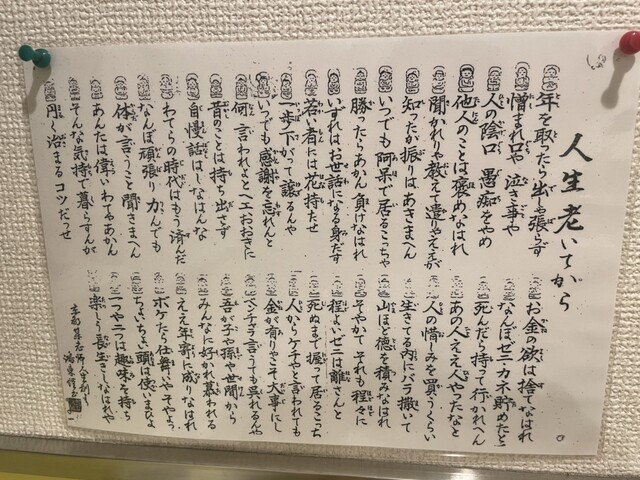 人生老いてから
年を取ったら出しゃ張らず
憎まれ口や 泣き事や
人の陰口 愚痴をやめ
他人のことは褒めなはれ
聞かれりゃ教えて遣りゃええが
知ったか振りはあきまへん
いつでも阿呆で居るこっちゃ
勝ったらあかん 負けなはれ
いずれはお世話になる身だす
若い者には花持たせ
一歩下がって譲るんや
いつでも感謝を忘れんと
何言われよとへエおおきに
昔のことは持ち出さず
自慢話はしなはんな
わてらの時代はもう済んだ
なんぼ頑張り力んでも
体が言うこと聞きまへん
あんたは偉いわてやあかん
そんな気持で暮らすんが
円く治まるコツだっせ
お金の欲は捨てなはれ
なんぼゼニカネ貯めたと
死んだら持って行かれへん
あの人ええ人やったなと
人の惜しみを買うくらい
生きてる内にバラ撒いて
山ほど徳を積みなはれ
そやかて それも程々に
程よいゼニは離さんと
死ぬまで握って居るこっち
人からケチやと言われても
金が有りゃこそ大事にし
ベンチャラ言うても呉れるんや
吾が子や孫や世間から
みんなに好かれ慕われる
ええ年寄に成りなはれ
ボケたら仕舞いやそやさう
ちょいちょい頭は使いまひょ
一つや二つは趣味を持ち
楽しう長生きしなはれや